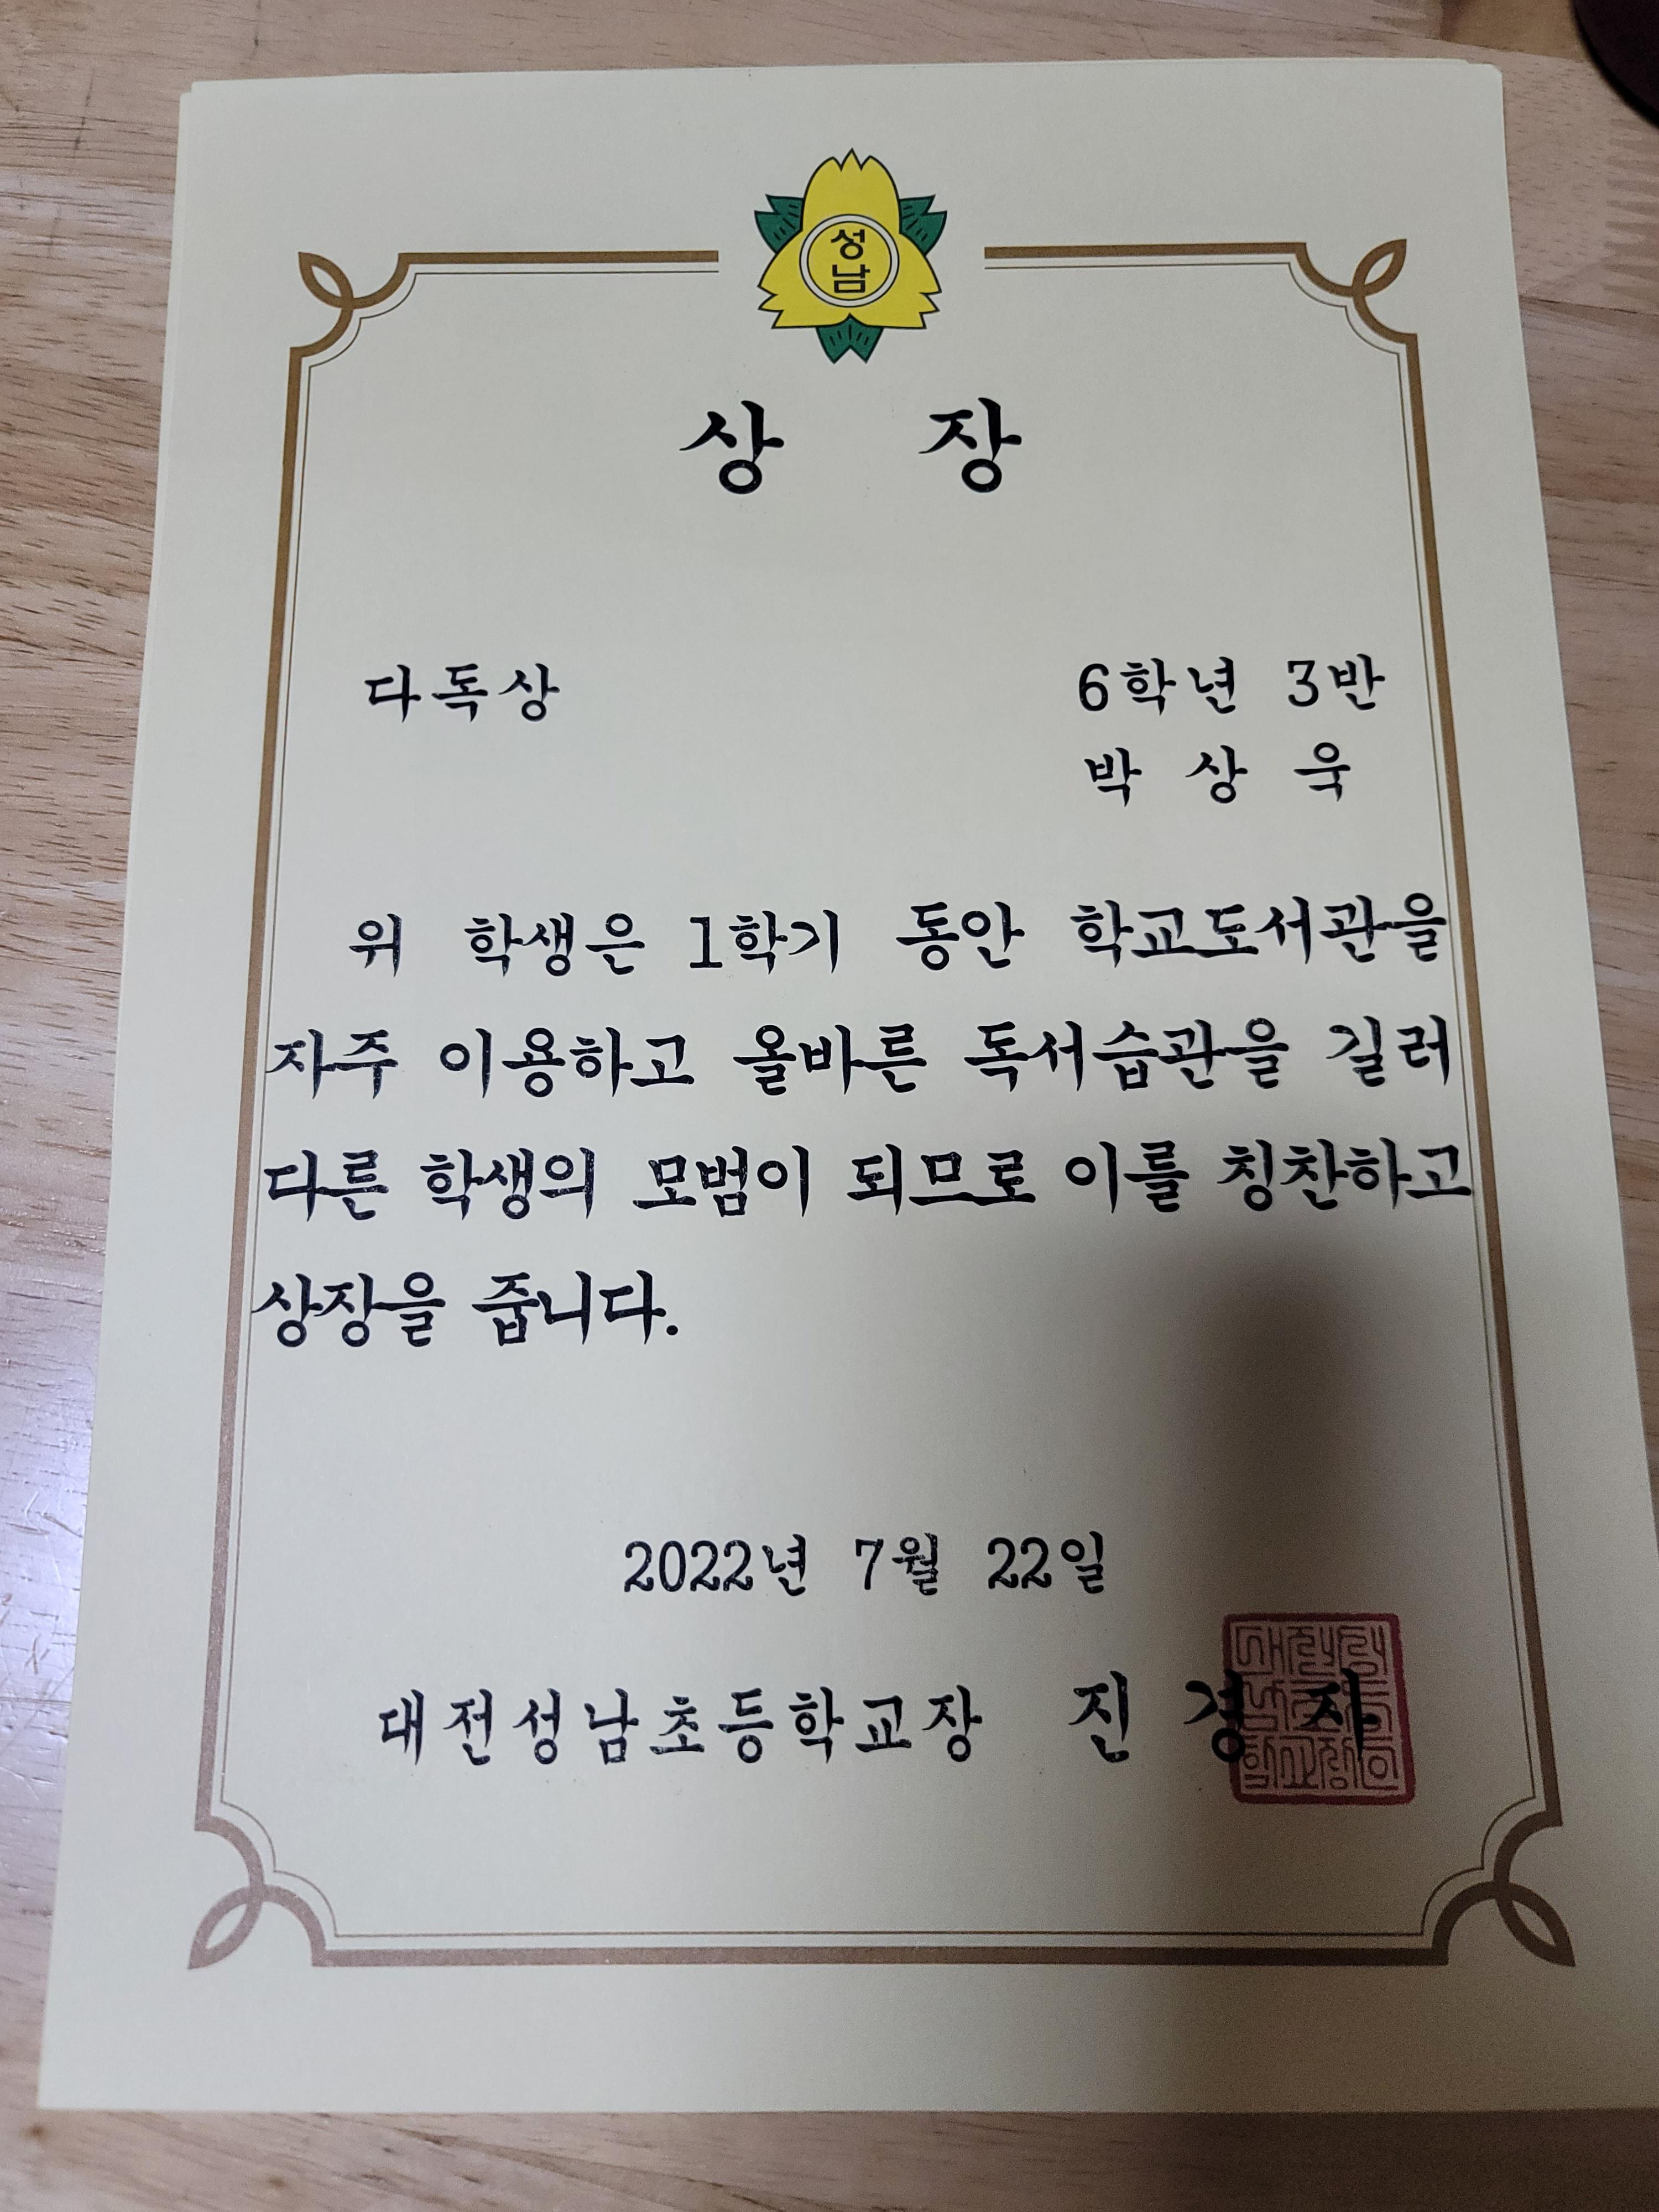 성
남
상 장
다독상
6학년 3반
박 상 욱
위 학생은 1학기 동안 학교도서관을
자주 이용하고 올바른 독서습관을 길러
다른 학생의 모범이 되므로 이를 칭찬하고
상장을 줍니다.
2022년 7월 22일
대전성남초등학교장 진 경 자